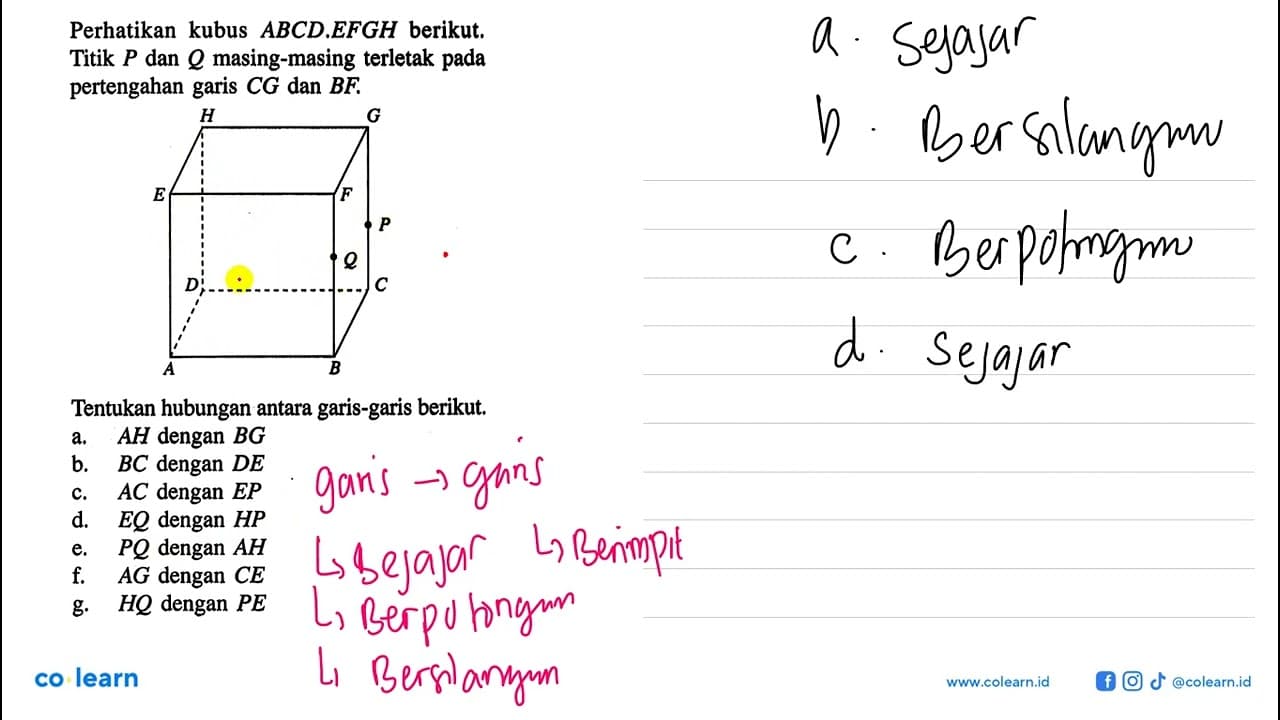 Perhatikan kubus ABCD.EFGH berikut.
Titik P dan Q masing-masing terletak pada
pertengahan garis CG dan BF.
H
G
E
F
P
Q
D
C
A
B
Tentukan hubungan antara garis-garis berikut.
a. AH dengan BG
b. BC dengan DE
c. AC dengan EP
d. EQ dengan HP
e. PQ dengan AH
f. AG dengan CE
g. HQ dengan PE
garis → garis
↳ Sejajar ↳ Berimpit
↳ Berpotongan
↳ Bersilangan
a. Sejajar
b. Bersilangan
c. Berpotongan
d. Sejajar
co learn
www.colearn.id
@colearn.id